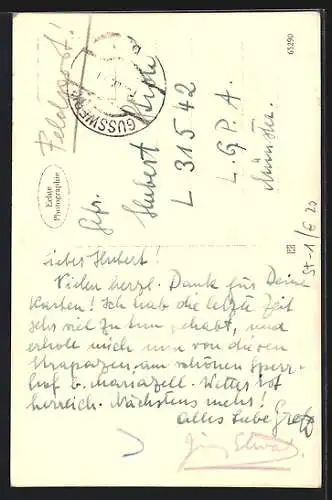 Feldpost!
GUSSWERK
Echte
Photographie
65290
Gfr.
Hubert
L 31542
L.G.P.A.
Münster.
Lieber Hubert!
Vielen herzl. Dank für Deine
Karten! Ich hab die letzte Zeit
sehr viel zu tun gehabt, und
erhole mich nun von diesen
Strapazen am schönen Sperr-
hof b. Mariazell. Wetter ist
herrlich. Nächstens mehr!
Alles Liebe